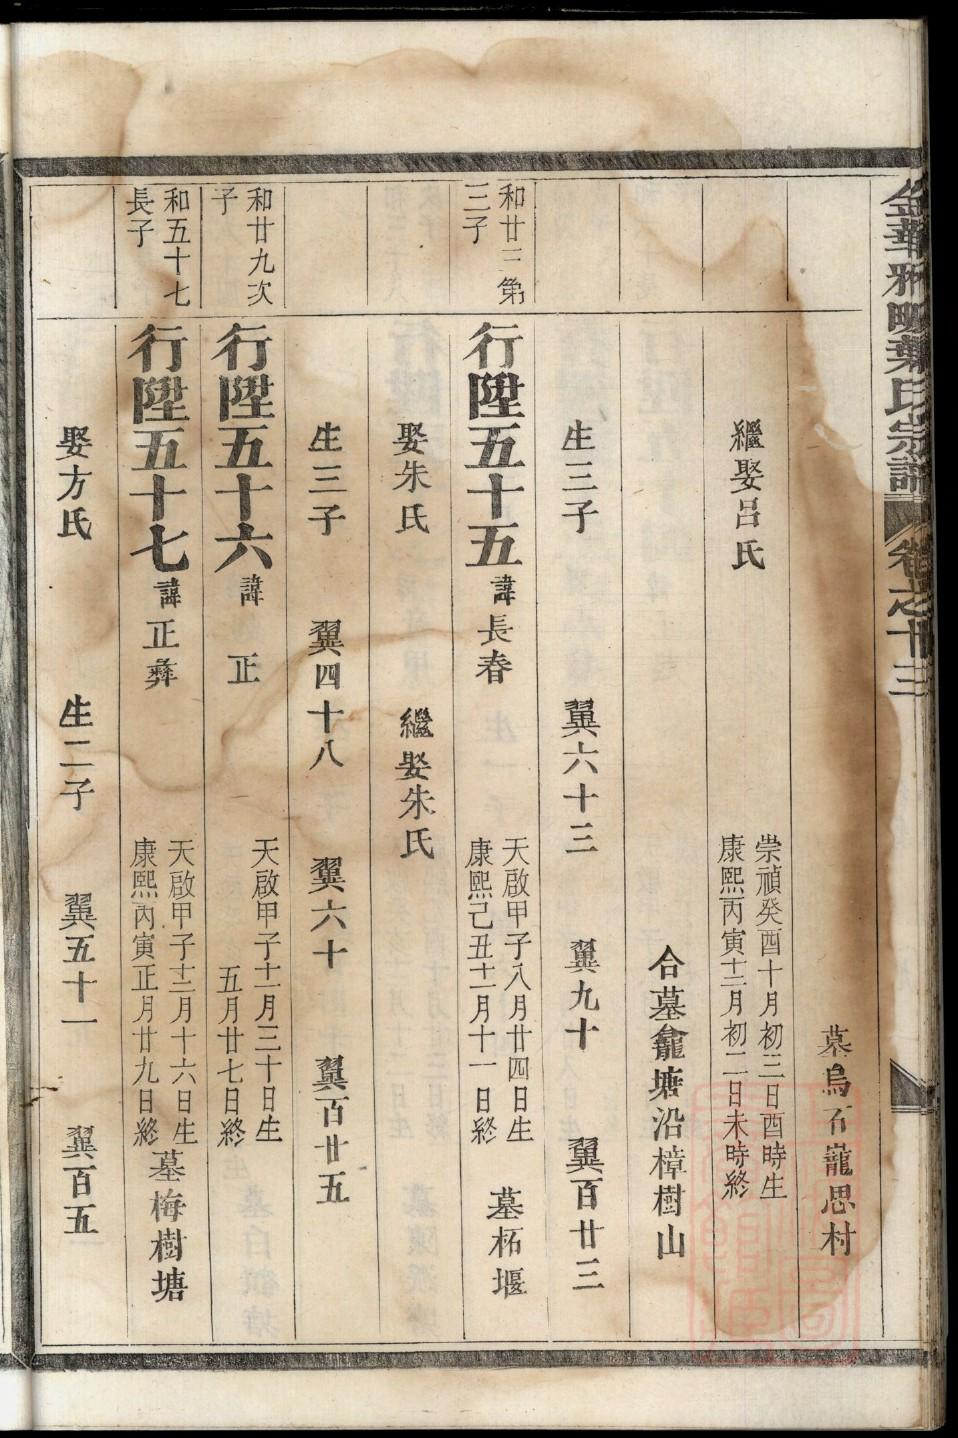 金華雅畈葉氏宗譜 卷之十三
墓烏石巃思村
繼娶呂氏 崇禎癸酉十月初三日酉時生
康熙丙寅十二月初二日未時終
合墓龕塘沿樟樹山
生三子 翼六十三 翼九十 翼百廿三
和廿三第
三子
行陞五十五 諱長春 天啟甲子八月廿四日生
康熙己丑十二月十一日終 墓柘堰
娶朱氏 繼娶朱氏
生三子 翼四十八 翼六十 翼百廿五
和廿九次
子
行陞五十六 諱正 天啟甲子十一月三十日生
五月廿七日終
和五十七
長子
行陞五十七 諱正彜 天啟甲子十二月十六日生
康熙丙寅正月廿九日終 墓梅樹塘
娶方氏 生二子 翼五十一 翼百五